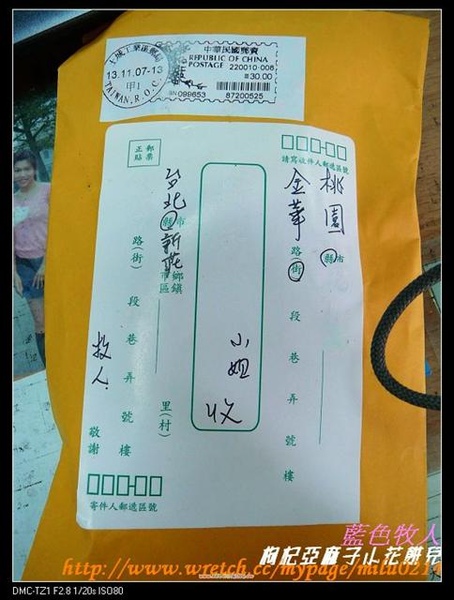 土城工業區郵局
13.11.07-13
甲1
TAIWAN, R.O.C.
中華民國郵資
REPUBLIC OF CHINA
POSTAGE 220010-006
30.00
SN 099653 87200525
正貼
郵票
請寫收件人郵遞區號
桃園縣市
金華路(街) 段 巷 弄 號 樓
小姐 收
台北縣市新莊鄉鎮市區 里(村)
路(街) 段 巷 弄 號 樓
牧人 敬謝
寄件人郵遞區號
藍色牧人
枸杞亞麻子山花餅兒
http://www.wretch.cc/mypage/mita0211
DMC-TZ1 F2.8 1/20s ISO80